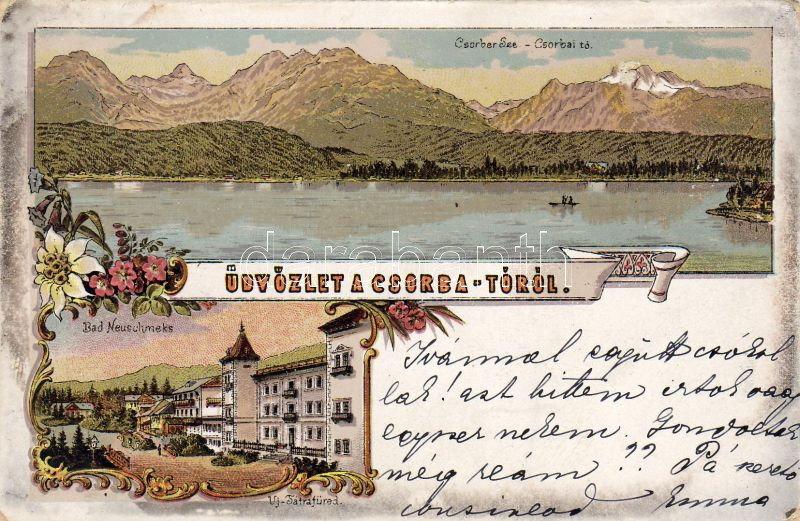 Csorber See - Csorbai tó.
ÜDVÖZLET A CSORBA-TÓRÓL.
darabanth
Bad Neuschmeks
Uj-Tátrafüred.
Ivánnal együtt csókol
lak! azt hittem irtok vagy
egyszer nekem. Gondoltak
még reám ?? Pá szerető
Emma